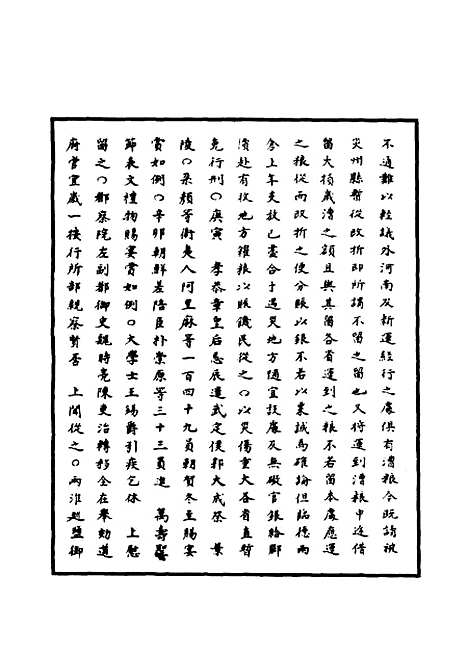 不通難以經議外河南及新運經行之處俱有漕粮今既請被
災州縣暫從改折即所謂不留之留也又何運到漕粮中途借
留大損歲漕之額且與其留各省運到之粮不若留本處應運
之粮從而改折之便分賑以銀不若以粟誠為確論但臨德兩
倉上年支放已盡合于遇災地方隨宜設處及無礙官銀給郡
濱赴有收地方糴粮以賑饑民從之○以災傷重大各省直暫
免行刑○庚寅 孝恭章皇后忌辰遣武定侯郭大誠祭 景
陵○朵顏等衛夷人阿里麻等一百四十九員朝賀冬至賜宴
賞如例○辛卯朝鮮差陪臣朴崇原等三十三員進 萬壽聖
節表文禮物賜宴賞如例○大學士王錫爵引疾乞休 上慰
留之○都察院左副都御史魏時亮陳吏治轉移全在舉劾道
府官宜歲一接行所部親察賢否 上閱從之○兩淮巡鹽御